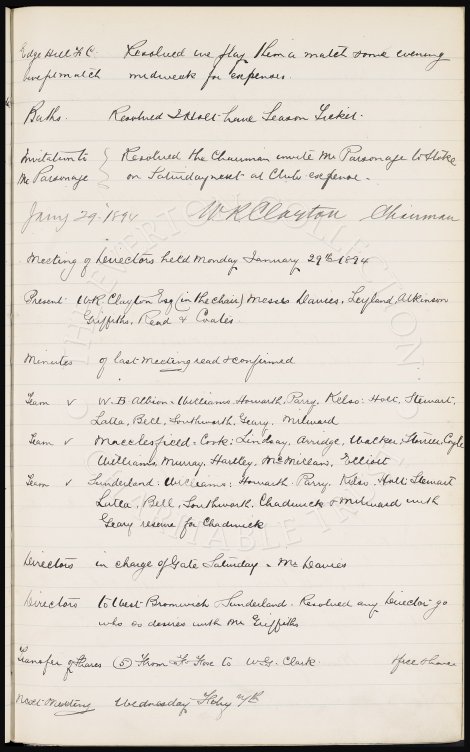 Edge Hill F.C. Resolved we play them a match some evening
benefit match midweek for expenses.
Baths. Resolved J Holt have Season Ticket.
Invitation to Resolved the Chairman invite Mr Parsonage to Stoke
Mr Parsonage on Saturday next at Clubs expense.
Jany 29. 1894 W R Clayton Chairman
Meeting of Directors held Monday January 29th 1894
Present W R Clayton Esq (in the chair) Messrs Davies, Leyland, Atkinson
Griffiths, Read & Coates
Minutes of last meeting read & confirmed
Team v W. B. Albion = Williams Howarth, Parry, Kelso: Holt, Stewart,
Latta, Bell, Southworth, Geary. Milward
Team v Macclesfield = Cook: Lindsay, Arridge, Walker: Storrier, Coyle
Williams, Murray, Hartley, McMillan, Elliott
Team v Sunderland: Williams: Howarth Parry Kelso, Holt: Stewart
Latta, Bell, Southworth, Chadwick & Milward with
Geary reserve for Chadwick
Directors in charge of Gate Saturday = Mr Davies
Directors to West Bromwich & Sunderland. Resolved any Director go
who so desires with Mr Griffiths
Transfer of Shares (5) From to W. G. Clark
Next Meeting Wednesday Feby
THE EVERTON COLLECTION
CHARITABLE TRUST